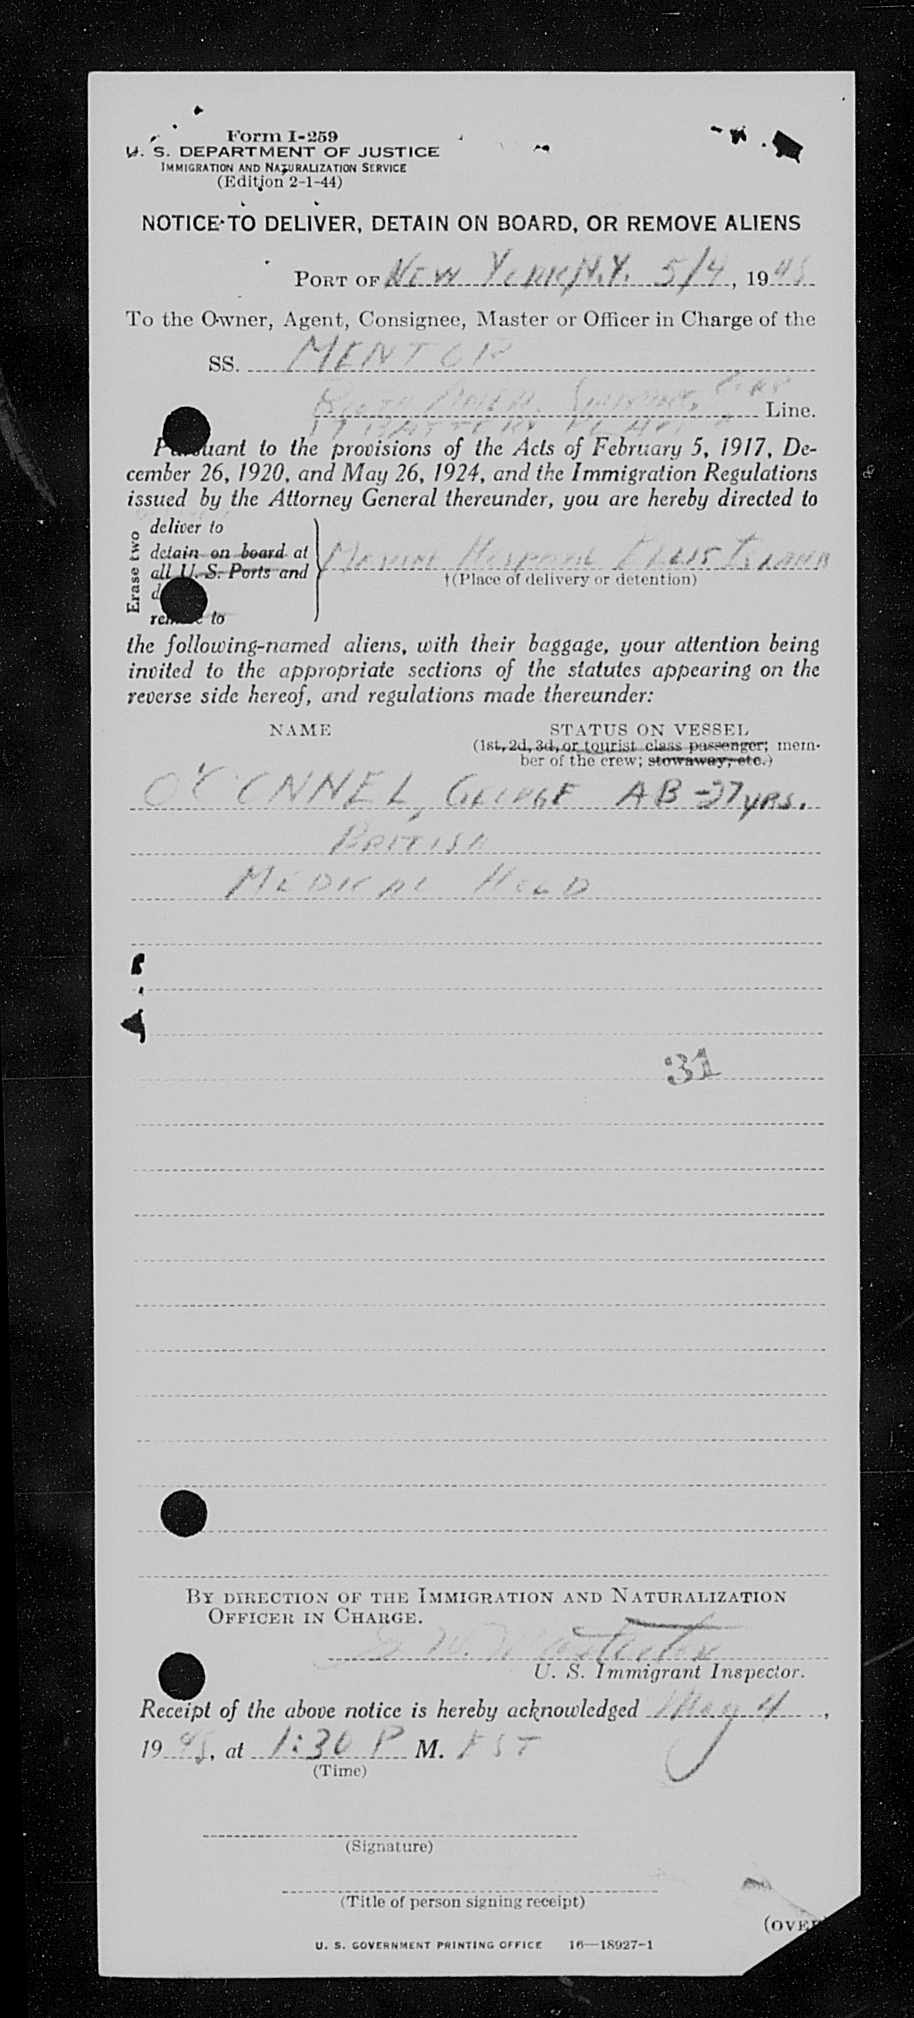 Form I-259
U. S. DEPARTMENT OF JUSTICE
IMMIGRATION AND NATURALIZATION SERVICE
(Edition 2-1-44)
NOTICE TO DELIVER, DETAIN ON BOARD, OR REMOVE ALIENS
PORT OF NEW YORK, N.Y. 5/4, 1945
To the Owner, Agent, Consignee, Master or Officer in Charge of the
SS. MENTOR
Line.
17 BATTERY PLACE
Pursuant to the provisions of the Acts of February 5, 1917, De-
cember 26, 1920, and May 26, 1924, and the Immigration Regulations
issued by the Attorney General thereunder, you are hereby directed to
Erase two
deliver to
detain on board at
all U. S. Ports and
remove to
MARINE HOSPITAL ELLIS ISLAND
†(Place of delivery or detention)
the following-named aliens, with their baggage, your attention being
invited to the appropriate sections of the statutes appearing on the
reverse side hereof, and regulations made thereunder:
NAME STATUS ON VESSEL
(1st, 2d, 3d, or tourist class passenger; mem-
ber of the crew; stowaway, etc.)
O'CONNEL, GEORGE AB - 27 yrs.
BRITISH
MEDICAL HOLD
31
BY DIRECTION OF THE IMMIGRATION AND NATURALIZATION
OFFICER IN CHARGE.
U. S. Immigrant Inspector.
Receipt of the above notice is hereby acknowledged May 4,
1945, at 1:30 P M. EST
(Time)
(Signature)
(Title of person signing receipt)
(OVER
U. S. GOVERNMENT PRINTING OFFICE 16—18927-1